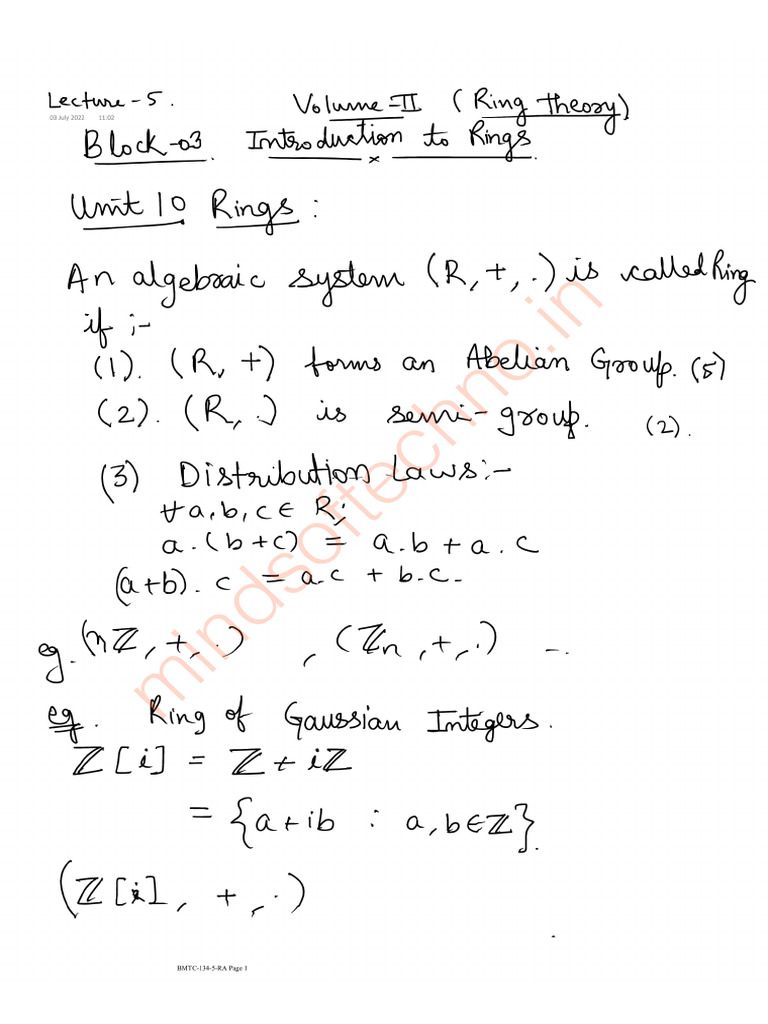 Lecture-5.
03 July 2022 11:02
Volume-II (Ring theory)
Block-03. Introduction to Rings.
Unit 10 Rings:
An algebraic system (R, +, .) is called Ring
if ;-
(1). (R, +) forms an Abelian Group. (5)
(2). (R, .) is semi-group. (2).
(3) Distribution Laws:-
∀ a, b, c ∈ R;
a.(b+c) = a.b + a.c
(a+b).c = a.c + b.c.
eg. (nℤ, +, .) , (ℤn, +, .) ...
eg. Ring of Gaussian Integers.
ℤ[i] = ℤ + iℤ
= {a+ib : a, b ∈ ℤ}.
(ℤ[i], +, .)
mindsoftechno.in
BMTC-134-5-RA Page 1